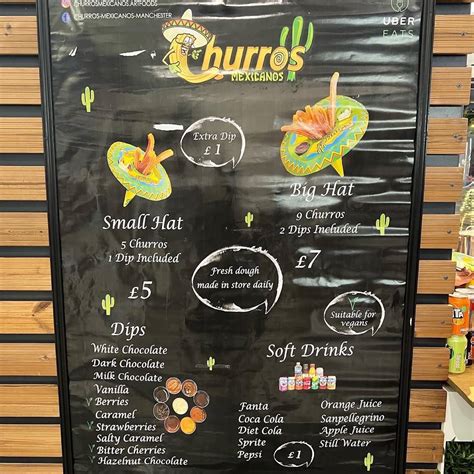 CHURROSMEXICANOS.ARTFOODS
CHURROS-MEXICANOS-MANCHESTER
UBER
EATS
Churros
MEXICANOS
Extra Dip
£1
Small Hat
5 Churros
1 Dip Included
£5
Big Hat
9 Churros
2 Dips Included
£7
Fresh dough
made in store daily
Suitable for
vegans
Dips
White Chocolate
Dark Chocolate
Milk Chocolate
Vanilla
Berries
Caramel
Strawberries
Salty Caramel
Bitter Cherries
Hazelnut Chocolate
Soft Drinks
Fanta
Coca Cola
Diet Cola
Sprite
Pepsi
£1
Orange Juice
Sanpellegrino
Apple Juice
Still Water